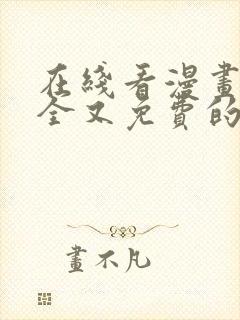 在綫看漫畫
全又免費的
畫不凡